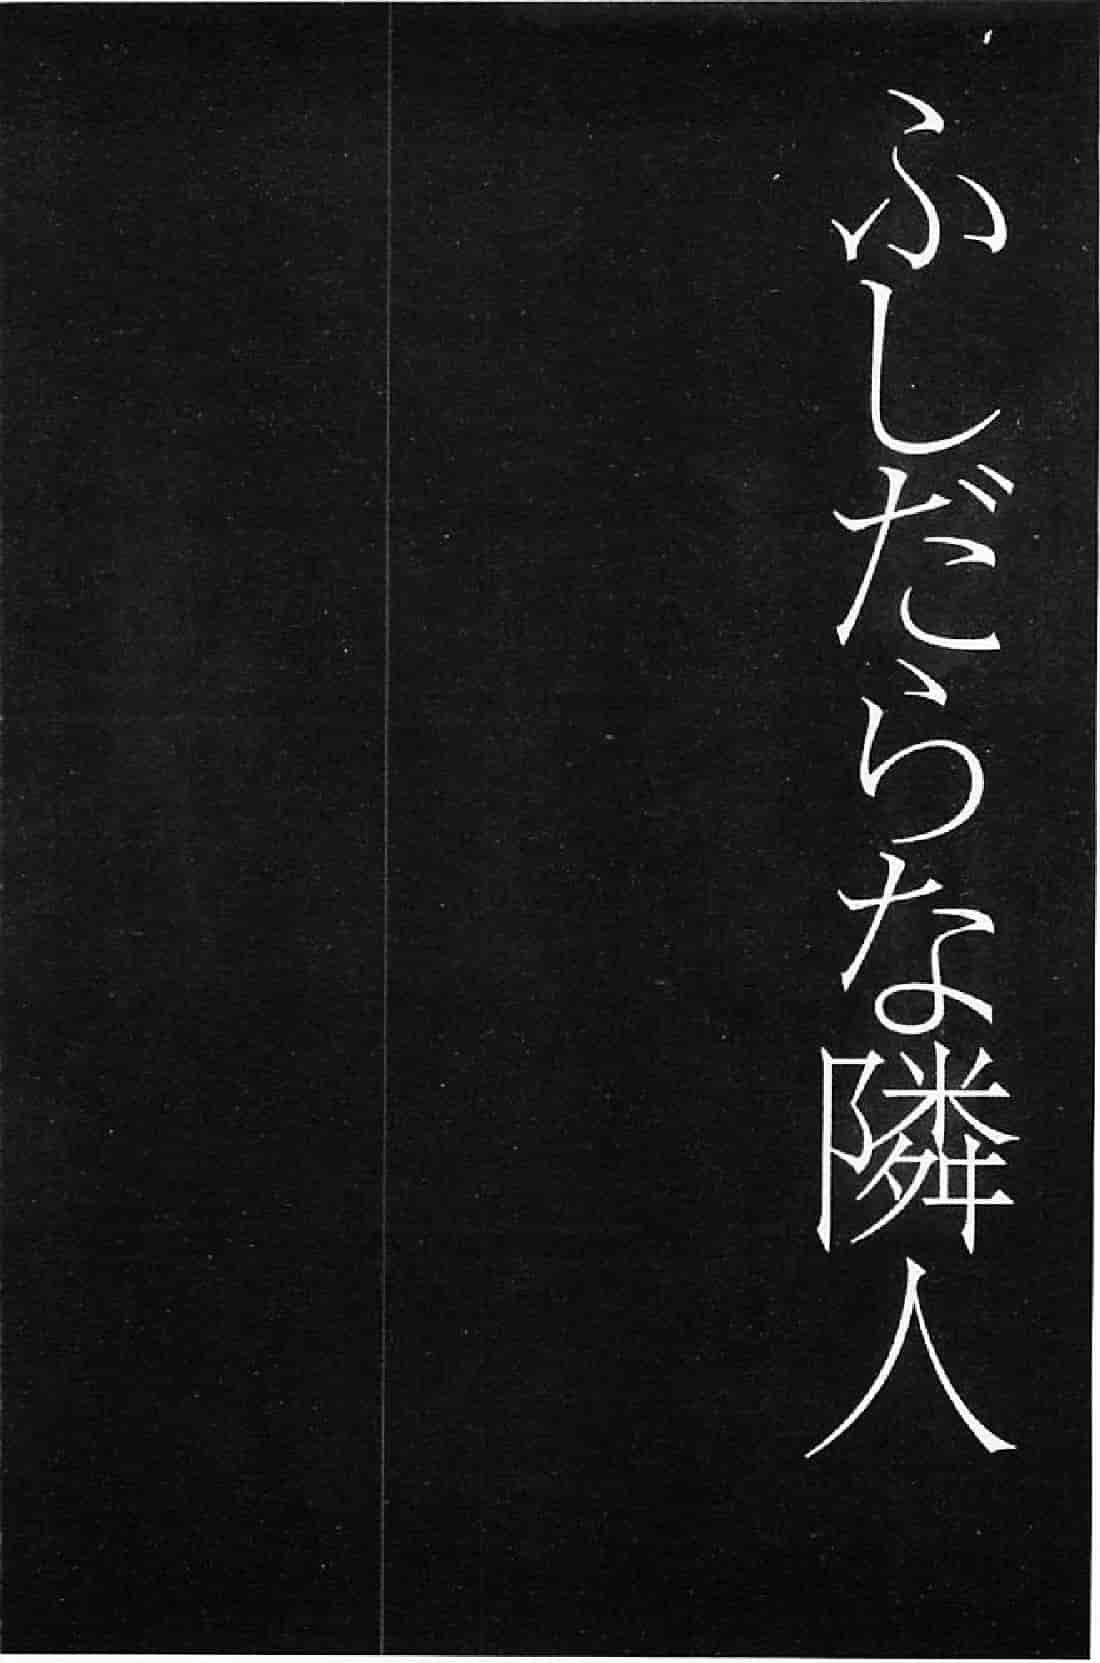 ふしだらな隣人